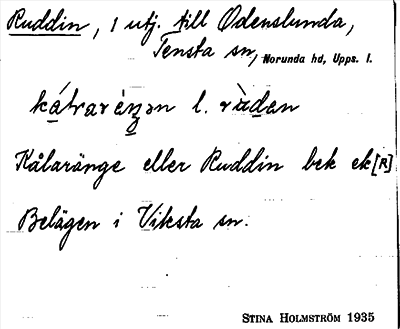 Ruddin, 1 utj. till Odenslunda,
Tensta sn, Norunda hd, Upps. l.
l. rùdan
Kålaränge eller Ruddin bek ek [R]
Belägen i Viksta sn.
STINA HOLMSTRÖM 1935